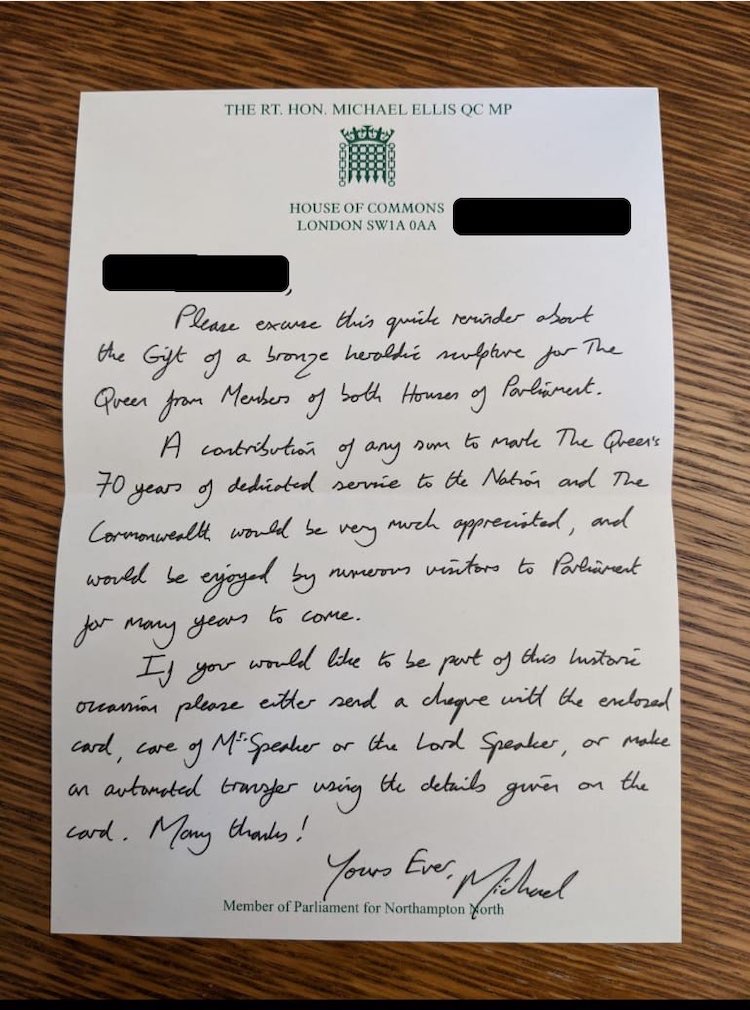 THE RT. HON. MICHAEL ELLIS QC MP
HOUSE OF COMMONS
LONDON SW1A 0AA
,
Please excuse this quick reminder about
the Gift of a bronze heraldic sculpture for The
Queen from Members of both Houses of Parliament.
A contribution of any sum to mark The Queen's
70 years of dedicated service to the Nation and The
Commonwealth would be very much appreciated, and
would be enjoyed by numerous visitors to Parliament
for many years to come.
If you would like to be part of this historic
occasion please either send a cheque with the enclosed
card, care of Mr. Speaker or the Lord Speaker, or make
an automated transfer using the details given on the
card. Many thanks!
Yours Ever,
Michael
Member of Parliament for Northampton North